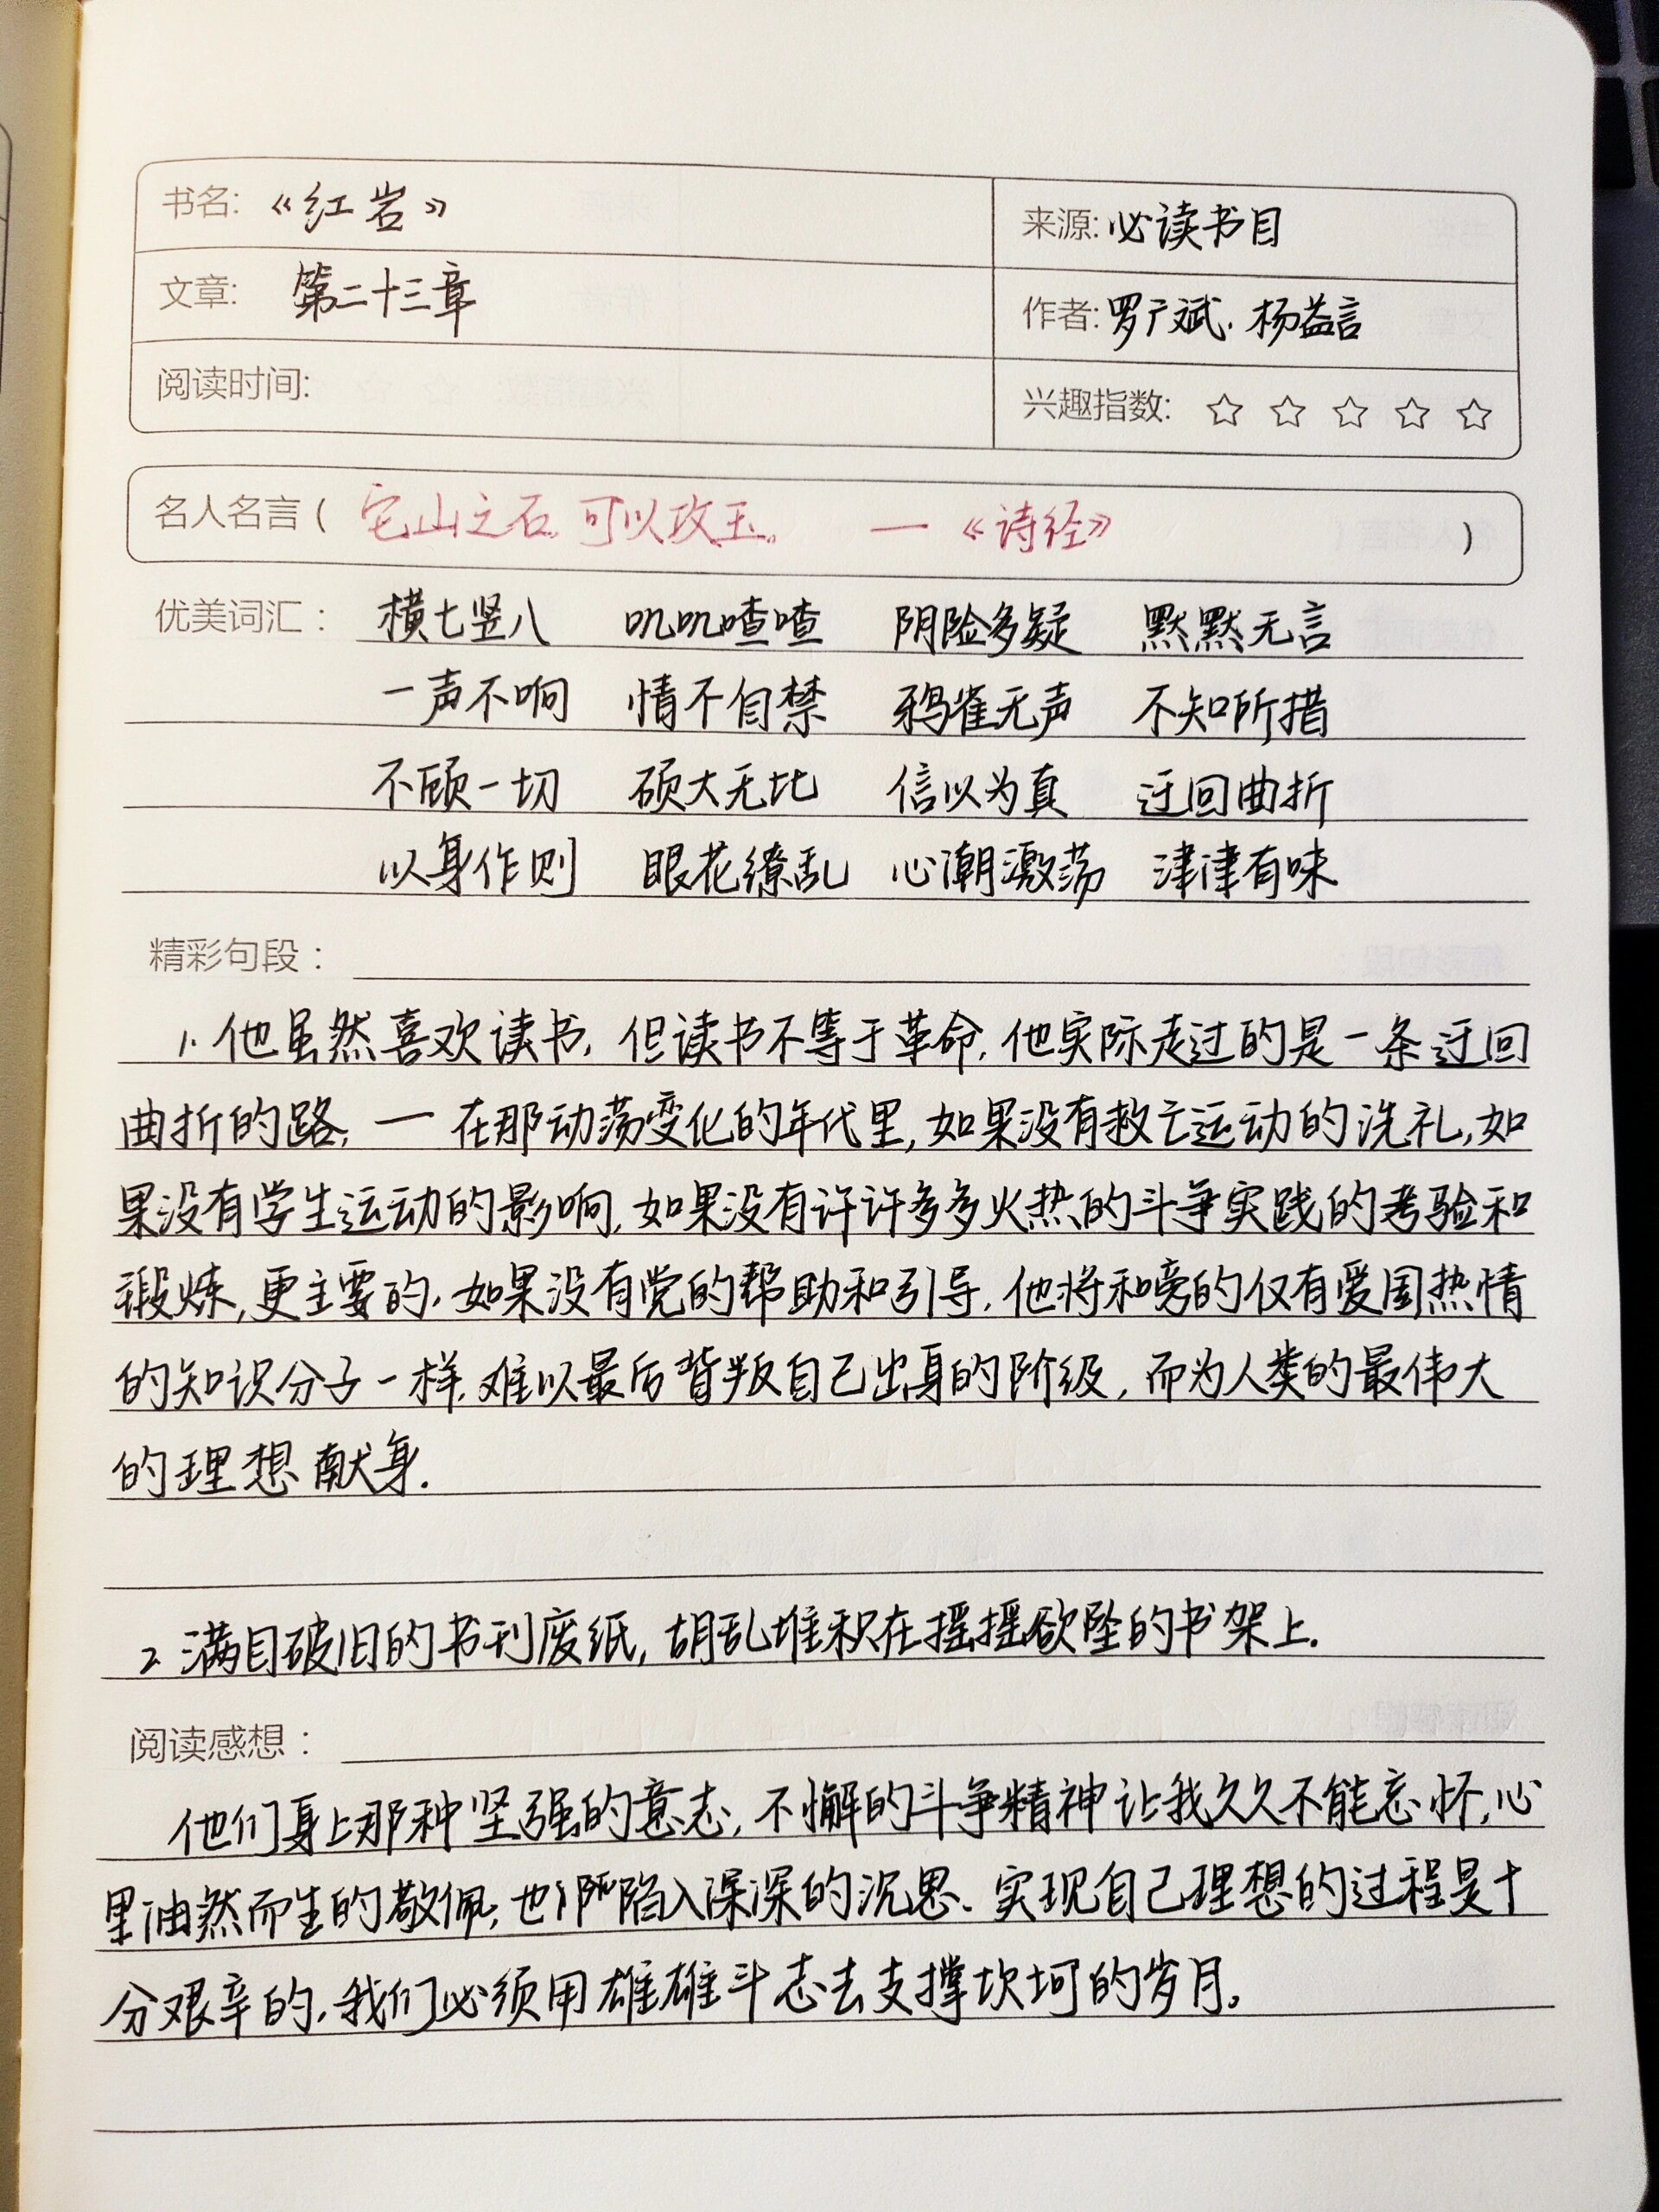 书名:《红岩》
来源:必读书目
文章: 第二十三章
作者:罗广斌.杨益言
阅读时间:
兴趣指数: ☆ ☆ ☆ ☆ ☆
名人名言( 它山之石,可以攻玉。 —《诗经》 )
优美词汇: 横七竖八 叽叽喳喳 阴险多疑 默默无言
一声不响 情不自禁 鸦雀无声 不知所措
不顾一切 硕大无比 信以为真 迂回曲折
以身作则 眼花缭乱 心潮激荡 津津有味
精彩句段:
1.他虽然喜欢读书,但读书不等于革命,他实际走过的是一条迂回
曲折的路,一在那动荡变化的年代里,如果没有救亡运动的洗礼,如
果没有学生运动的影响,如果没有许许多多火热的斗争实践的考验和
锻炼,更主要的,如果没有党的帮助和引导,他将和旁的仅有爱国热情
的知识分子一样,难以最后背叛自己出身的阶级,而为人类的最伟大
的理想献身.
2.满目破旧的书刊废纸,胡乱堆积在摇摇欲坠的书架上.
阅读感想:
他们身上那种坚强的意志,不懈的斗争精神让我久久不能忘怀,心
里油然而生的敬佩,也陷入深深的沉思、实现自己理想的过程是十
分艰辛的,我们必须用雄雄斗志去支撑坎坷的岁月。